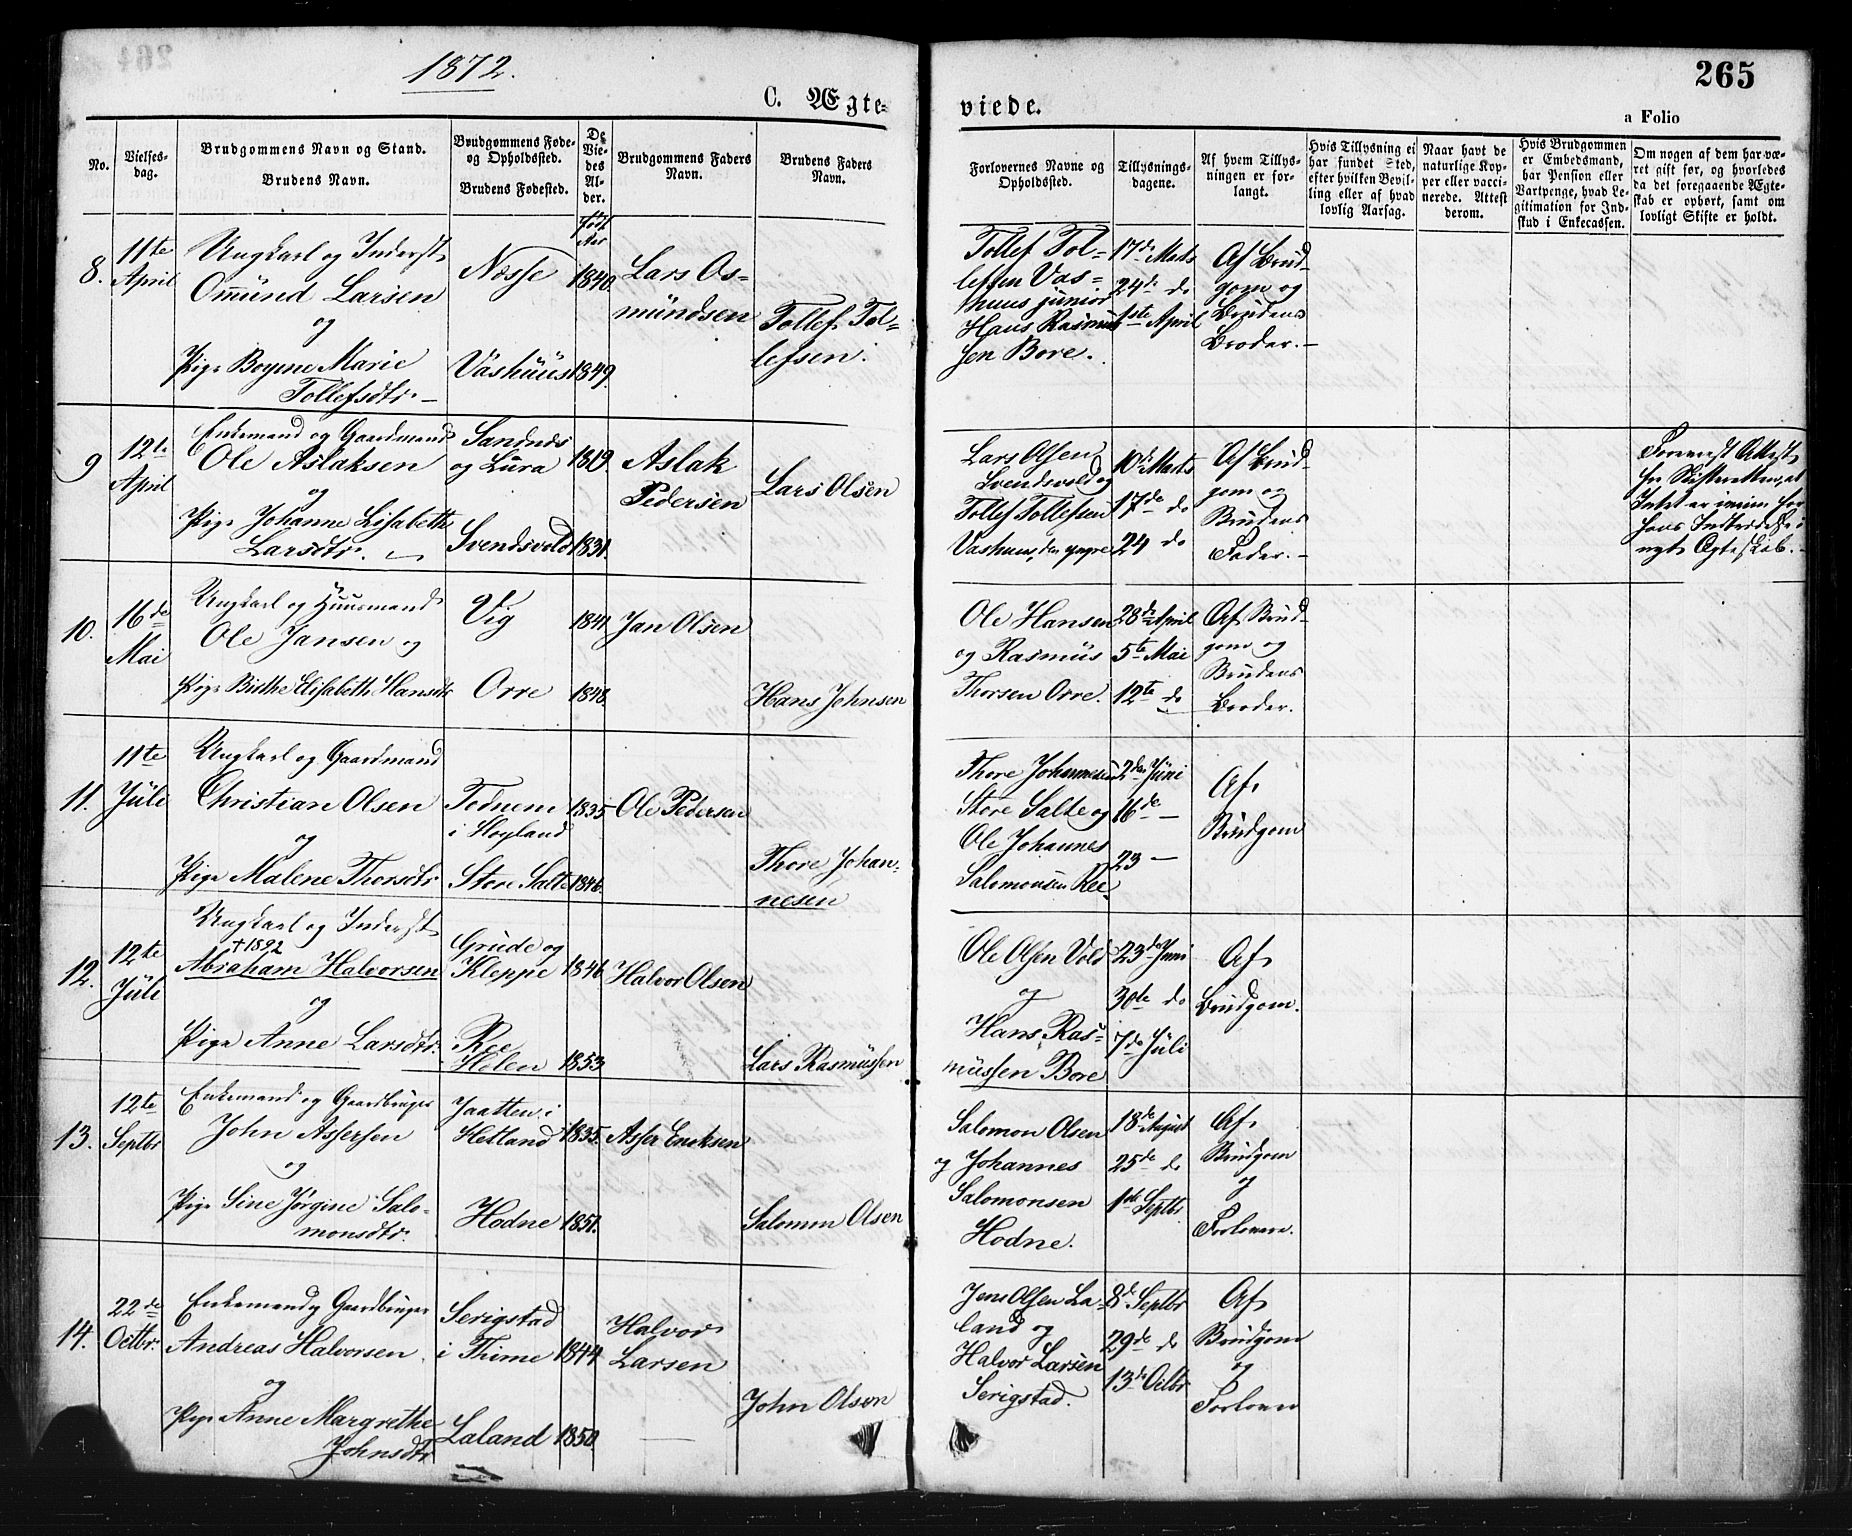 1872.
C. Ægte-
viede.
265
a Folio
No.
Vielses-
dag.
Brudgommens Navn og Stand.
Brudens Navn.
Brudgommens Føde-
og Opholdssted.
Brudens Fødested.
De
Vie-
des
Al-
der.
Brudgommens Faders
Navn.
Brudens Faders
Navn.
Forlovernes Navne og
Opholdssted.
Tillysnings-
dagene.
Af hvem Tillys-
ningen er for-
langt.
Hvis Tillysning ei
har fundet Sted,
efter hvilken Bevil-
ling eller af hvad
lovlig Aarsag.
Naar havt de
naturlige Kop-
per eller vacci-
nerede. Attest
derom.
Hvis Brudgommen
er Embedsmand,
har Pension eller
Vartpenge, hvad Le-
gitimation for Ind-
skud i Enkecassen.
Om nogen af dem har væ-
ret gift før, og hvorledes
da det foregaaende Ægte-
skab er ophørt, samt om
lovligt Skifte er holdt.
Født
Aar
8.
11te
April
Ungkarl og Inderst
Omund Larsen
og
Pige Boyine Marie
Tollefsdtr. –
Næsse
Vashuus
1840.
1849.
Lars Os-
mundsen
Tollef Tol-
lefsen.
Tollef Tol-
lefsen Vas-
huus junior
Hans Rasmus-
sen Bore.
17de Marts
24de do
1ste April
Af Brud-
gom og
Brudens
Broder. –
9
12te
April
Enkemand og Gaardmand
Ole Aslaksen
og
Pige Johanne Lisabeth
Larsdtr. –
Sandnes
og Lura
Svendsvold
1819
1831.
Aslak
Pedersen
Lars Olsen
Lars Olsen
Svendsvold og
Tollef Tollefsen
Vashuus, den yngre
10de Marts
17de do
24 do
Af Brud-
gom og
Brudens
Fader. –
Foreviist Attest
fra Skifteretten, at
Intet er iveien for
hans Indtrædelse i
nyt Ægteskab. –
10.
16de
Mai
Ungkarl og Huusmand
Ole Jansen og
Pige Birthe Elisabeth Hansdtr
Vig
Orre
1841.
1848.
Jan Olsen
Hans Johnsen
Ole Hansen
og Rasmus
Thorsen Orre.
28de April
5te Mai
12te do
Af Brud-
gom og
Brudens
Broder.
11.
11te
Juli
Ungkarl og Gaardmand
Christian Olsen
og
Pige Malene Thorsdtr
Tednem
i Høyland
Store Salte
1835
1846.
Ole Pedersen
Thore Johan-
nesen
Thore Johannesen
Store Salte og
Ole Johannes
Salomonsen Ree
2den Juni
16de –
23 –
Af
Brudgom
12.
12te
Juli
Ungkarl og Inderst
†1892
Abraham Halvorsen
og
Pige Anne Larsdtr.
Grude og
Kleppe
Ree
Holen
1846.
1853
Halvor Olsen
Lars Rasmussen
Ole Olsen Vold
og
Hans Ras-
mussen Bore
23de Juni
30te do
7de Juli
Af
Brudgom.
13.
12te
Septbr
Enkemand og Gaardbruger
John Assersen
og
Pige Sine Jørgine Salo-
monsdtr.
Jaatten i
Hetland
Hodne
1835.
1851.
Asser Ericksen
Salomon Olsen
Salomon Olsen
og Johannes
Salomonsen
Hodne.
18de August
25de do
1de Septbr
Af
Brudgom
og
Forlovere.
14.
22de
Octbr.
Enkemand og Gaardbruger
Andreas Halvorsen
og
Pige Anne Margrethe
Johnsdtr
Serigstad
i Thime
Laland
1844.
1850
Halvor
Larsen
John Olsen
Jens Olsen La-
land og
Halvor Larsen
Serigstad.
8de Septbr
29de do
13de Octbr
Af
Brudgom
og
Forlover